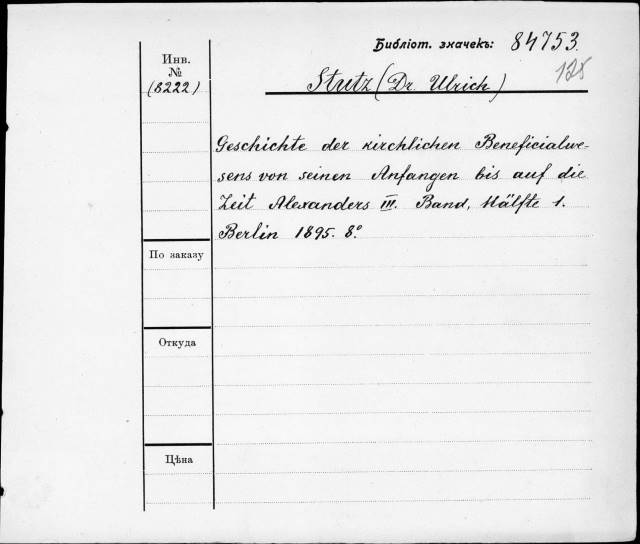 Библіот. значекъ: 84753.
125
Инв.
№
(8222)
Stutz (Dr. Ulrich)
Geschichte der kirchlichen Beneficialwe-
sens von seinen Anfangen bis auf die
Zeit Alexanders III. Band, Hälfte 1.
Berlin 1895. 8°.
По заказу
Откуда
Цѣна